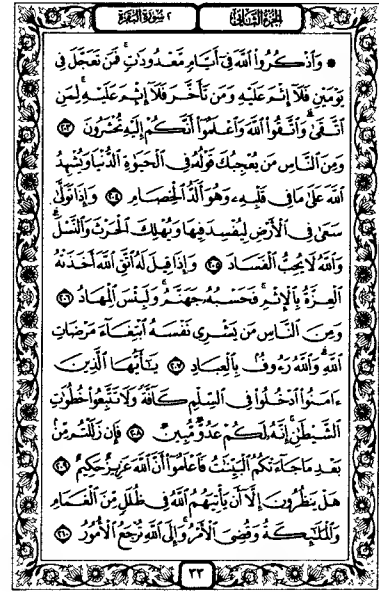 الجزء الثاني
٢ سورة البقرة
۞ وَاذْكُرُوا اللَّهَ فِي أَيَّامٍ مَعْدُودَاتٍ ۚ فَمَنْ تَعَجَّلَ فِي
يَوْمَيْنِ فَلَا إِثْمَ عَلَيْهِ وَمَنْ تَأَخَّرَ فَلَا إِثْمَ عَلَيْهِ ۚ لِمَنِ
اتَّقَىٰ ۗ وَاتَّقُوا اللَّهَ وَاعْلَمُوا أَنَّكُمْ إِلَيْهِ تُحْشَرُونَ ٢٠٣
وَمِنَ النَّاسِ مَنْ يُعْجِبُكَ قَوْلُهُ فِي الْحَيَوٰةِ الدُّنْيَا وَيُشْهِدُ
اللَّهَ عَلَىٰ مَا فِي قَلْبِهِ وَهُوَ أَلَدُّ الْخِصَامِ ٢٠٤ وَإِذَا تَوَلَّىٰ
سَعَىٰ فِي الْأَرْضِ لِيُفْسِدَ فِيهَا وَيُهْلِكَ الْحَرْثَ وَالنَّسْلَ ۗ
وَاللَّهُ لَا يُحِبُّ الْفَسَادَ ٢٠٥ وَإِذَا قِيلَ لَهُ اتَّقِ اللَّهَ أَخَذَتْهُ
الْعِزَّةُ بِالْإِثْمِ ۚ فَحَسْبُهُ جَهَنَّمُ ۚ وَلَبِئْسَ الْمِهَادُ ٢٠٦
وَمِنَ النَّاسِ مَنْ يَشْرِي نَفْسَهُ ابْتِغَاءَ مَرْضَاتِ
اللَّهِ ۗ وَاللَّهُ رَءُوفٌ بِالْعِبَادِ ٢٠٧ يَٰأَيُّهَا الَّذِينَ
ءَامَنُوا ادْخُلُوا فِي السِّلْمِ كَافَّةً وَلَا تَتَّبِعُوا خُطُوَٰتِ
الشَّيْطَٰنِ ۚ إِنَّهُ لَكُمْ عَدُوٌّ مُبِينٌ ٢٠٨ فَإِنْ زَلَلْتُمْ مِنْ
بَعْدِ مَا جَاءَتْكُمُ الْبَيِّنَٰتُ فَاعْلَمُوا أَنَّ اللَّهَ عَزِيزٌ حَكِيمٌ ٢٠٩
هَلْ يَنْظُرُونَ إِلَّا أَنْ يَأْتِيَهُمُ اللَّهُ فِي ظُلَلٍ مِنَ الْغَمَامِ
وَالْمَلَٰئِكَةُ وَقُضِيَ الْأَمْرُ ۚ وَإِلَى اللَّهِ تُرْجَعُ الْأُمُورُ ٢١٠
٣٢